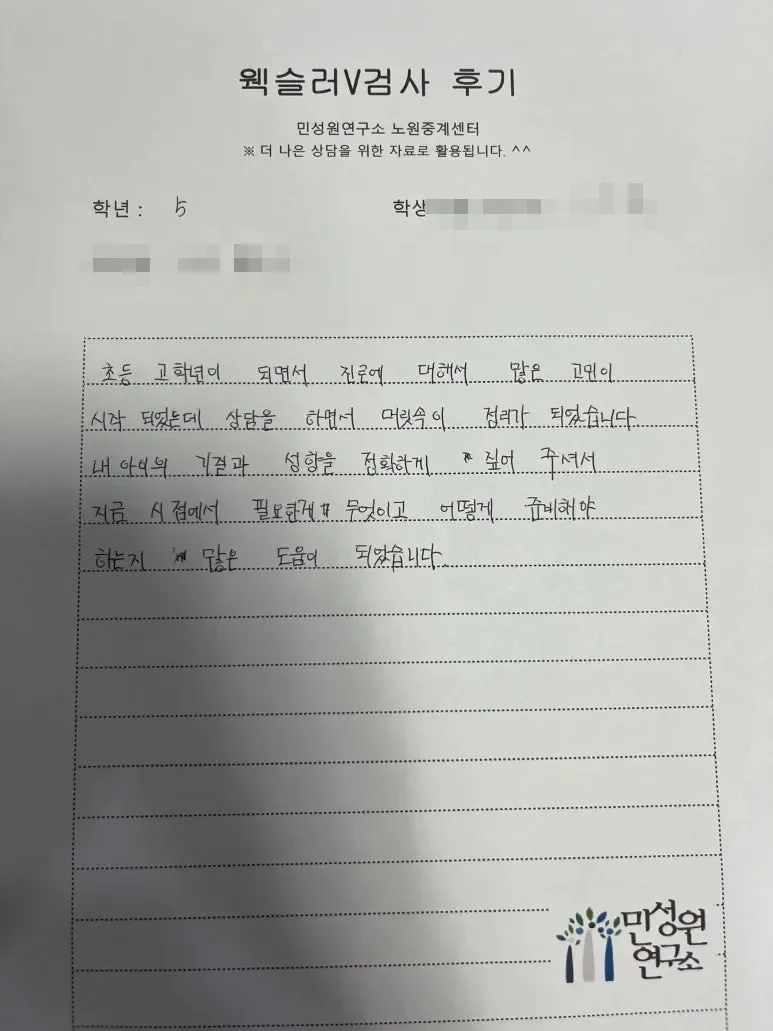 웩슬러V검사 후기
민성원연구소 노원중계센터
※ 더 나은 상담을 위한 자료로 활용됩니다. ^^
학년 : 5 학생
초등 고학년이 되면서 진로에 대해서 많은 고민이
시작 되었는데 상담을 하면서 머릿속이 정리가 되었습니다.
내 아이의 기질과 성향을 정확하게 짚어 주셔서
지금 시점에서 필요한게 무엇이고 어떻게 준비해야
하는지 많은 도움이 되었습니다.
민성원
연구소